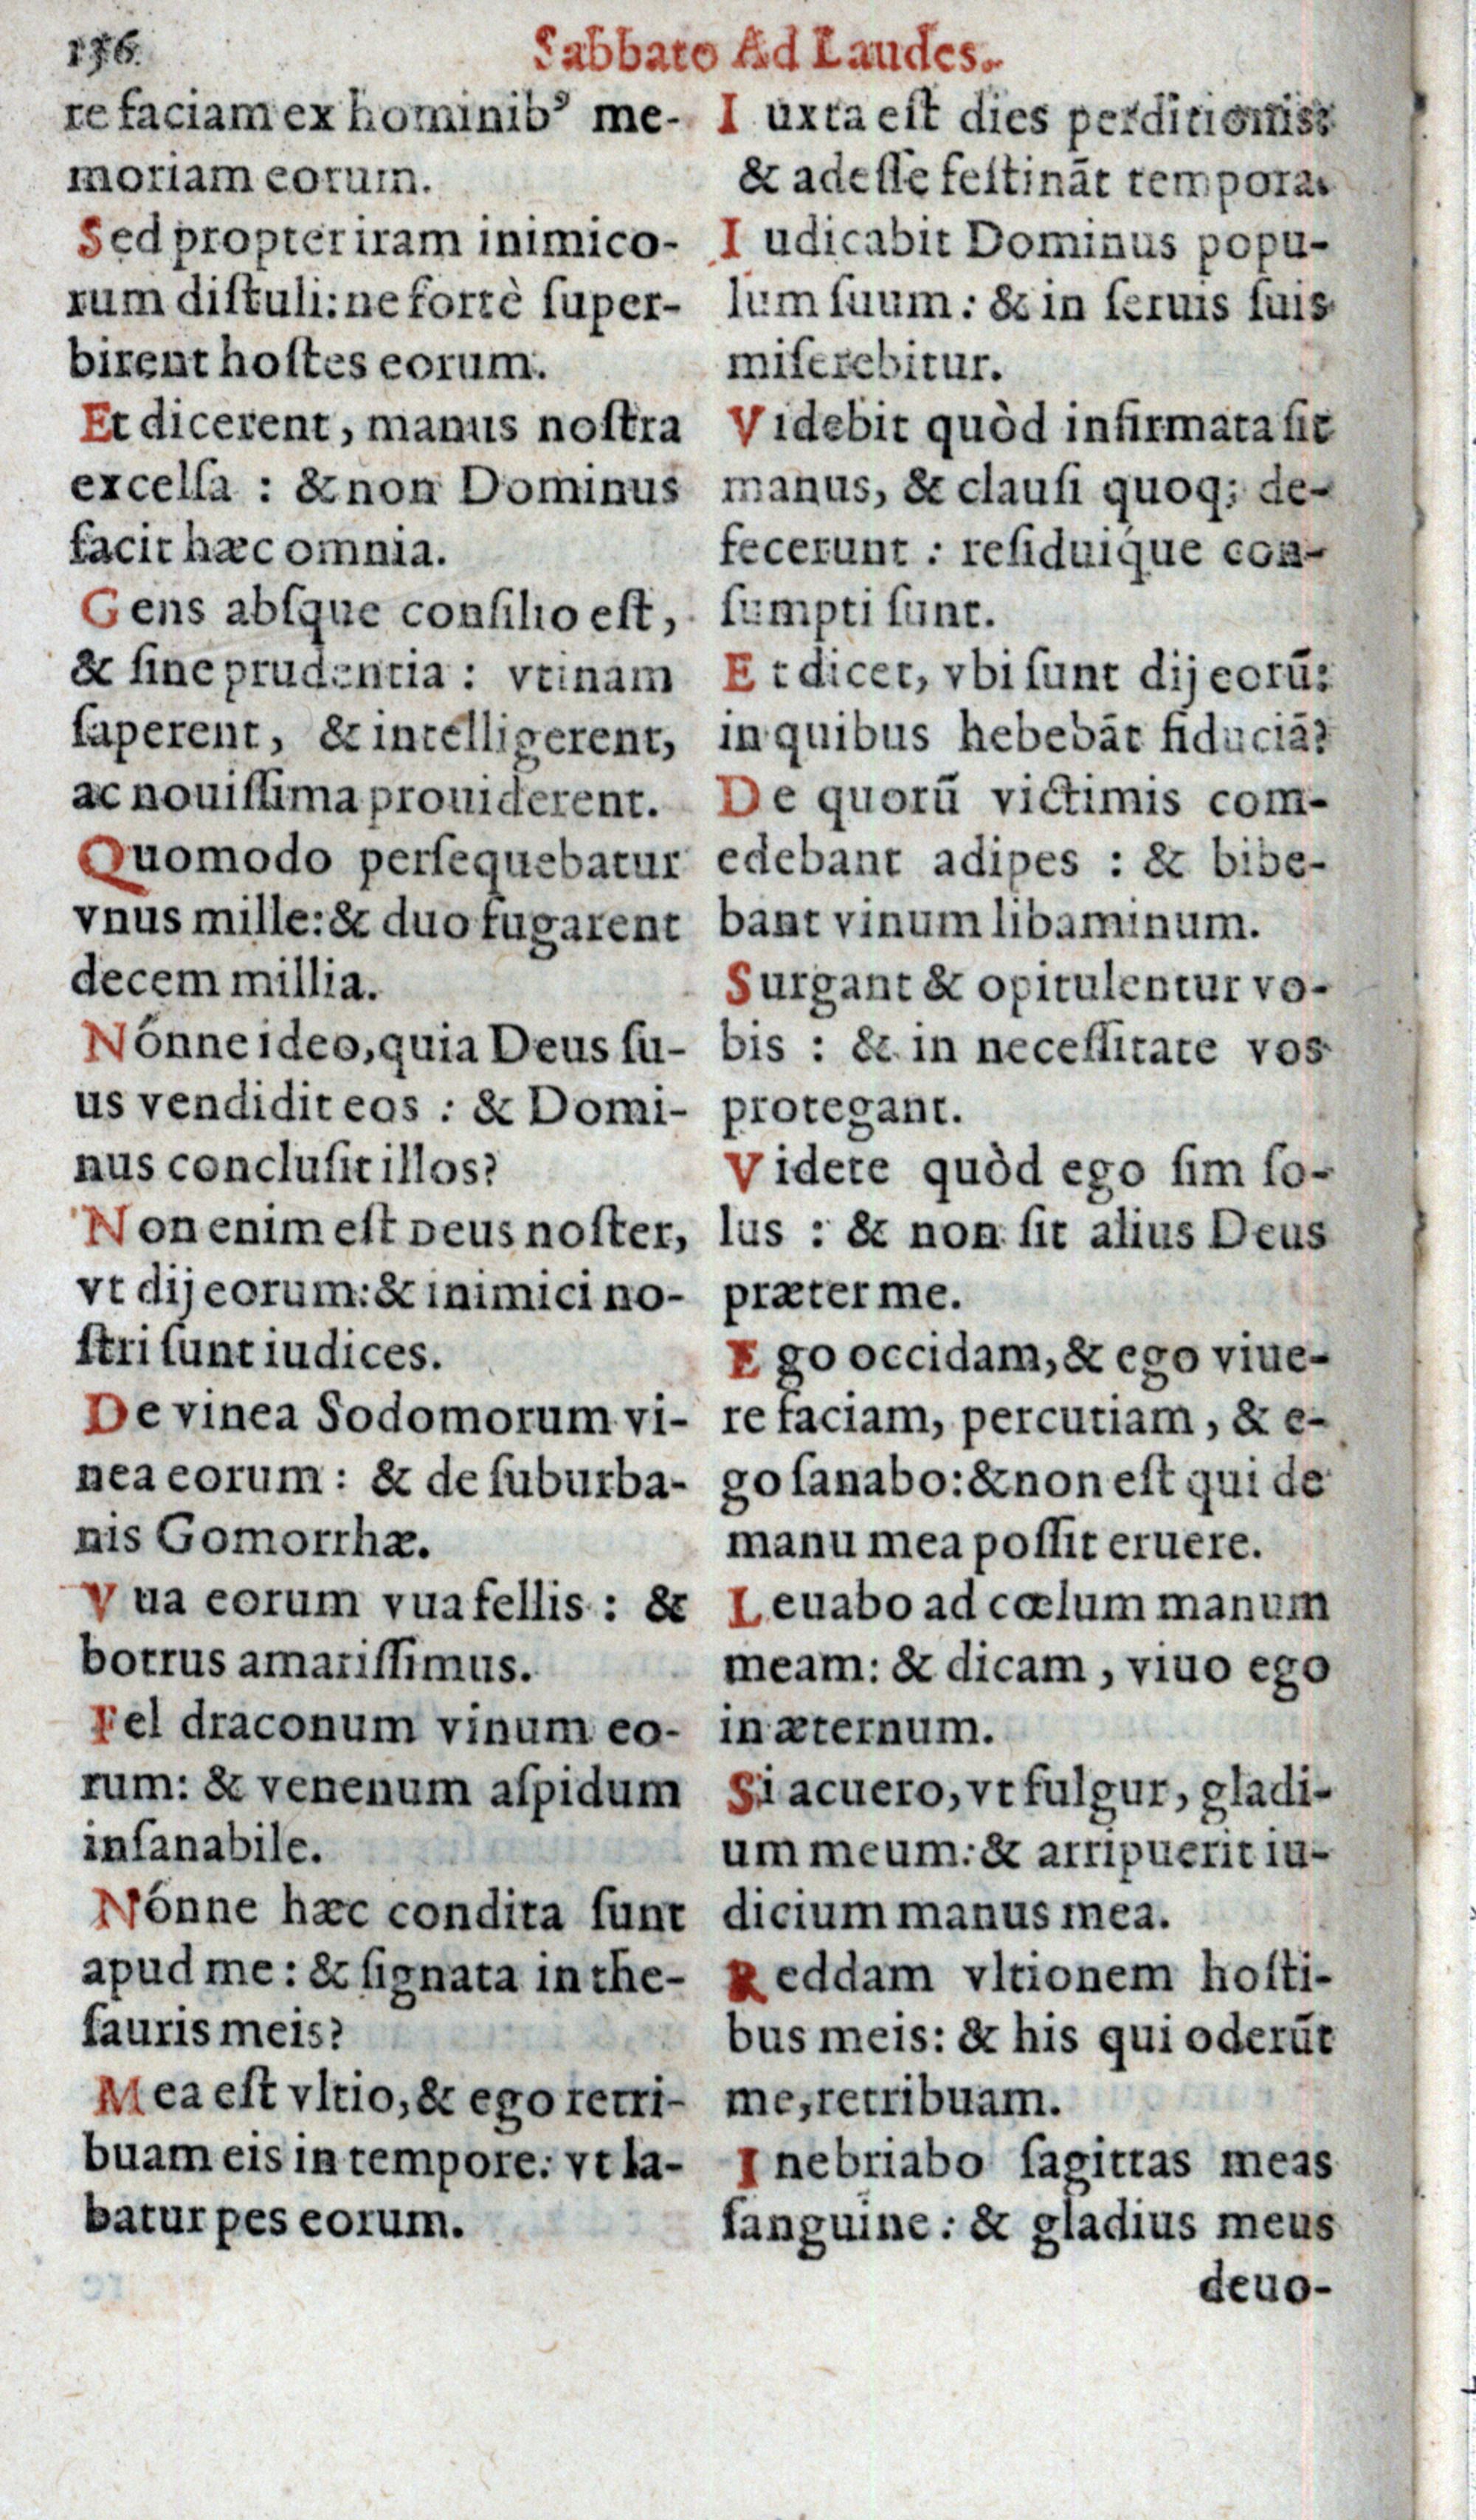 156.
Sabbato Ad Laudes.
re faciam ex hominibꝰ me-
moriam eorum.
Sed propter iram inimico-
rum diſtuli: ne fortè ſuper-
birent hoſtes eorum.
Et dicerent, manus noſtra
excelſa : & non Dominus
facit hæc omnia.
Gens abſque conſilio eſt,
& ſine prudentia : vtinam
ſaperent, & intelligerent,
ac nouiſſima prouiderent.
Quomodo perſequebatur
vnus mille: & duo fugarent
decem millia.
Nónne ideo, quia Deus ſu-
us vendidit eos : & Domi-
nus concluſit illos?
Non enim eſt Deus noſter,
vt dij eorum: & inimici no-
ſtri ſunt iudices.
De vinea Sodomorum vi-
nea eorum : & de ſuburba-
nis Gomorrhæ.
Vua eorum vua fellis : &
botrus amariſſimus.
Fel draconum vinum eo-
rum: & venenum aſpidum
inſanabile.
Nónne hæc condita ſunt
apud me : & ſignata in the-
ſauris meis?
Mea eſt vltio, & ego retri-
buam eis in tempore: vt la-
batur pes eorum.
Iuxta eſt dies perditionis:
& adeſſe feſtināt tempora.
Iudicabit Dominus popu-
lum ſuum : & in ſeruis ſuis
miſerebitur.
Videbit quòd infirmata ſit
manus, & clauſi quoq; de-
fecerunt : reſiduíque con-
ſumpti ſunt.
Et dicet, vbi ſunt dij eorū:
in quibus hebebāt fiduciā?
De quorū victimis com-
edebant adipes : & bibe-
bant vinum libaminum.
Surgant & opitulentur vo-
bis : & in neceſſitate vos
protegant.
Videte quòd ego ſim ſo-
lus : & non ſit alius Deus
præter me.
Ego occidam, & ego viue-
re faciam, percutiam, & e-
go ſanabo: & non eſt qui de
manu mea poſſit eruere.
Leuabo ad cœlum manum
meam: & dicam, viuo ego
in æternum.
Si acuero, vt fulgur, gladi-
um meum: & arripuerit iu-
dicium manus mea.
Reddam vltionem hoſti-
bus meis: & his qui oderūt
me, retribuam.
Inebriabo ſagittas meas
ſanguine : & gladius meus
deuo-